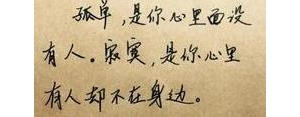 孤单,是你心里面没
有人。寂寞,是你心里
有人却不在身边。